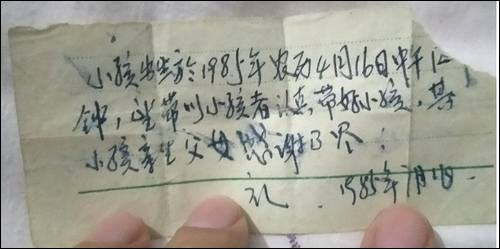 小孩出生於1985年农历4月16日中午12
钟，望带叫小孩者认真带好小孩，其
小孩亲生父母感谢不尽！
礼 1985年 月 日